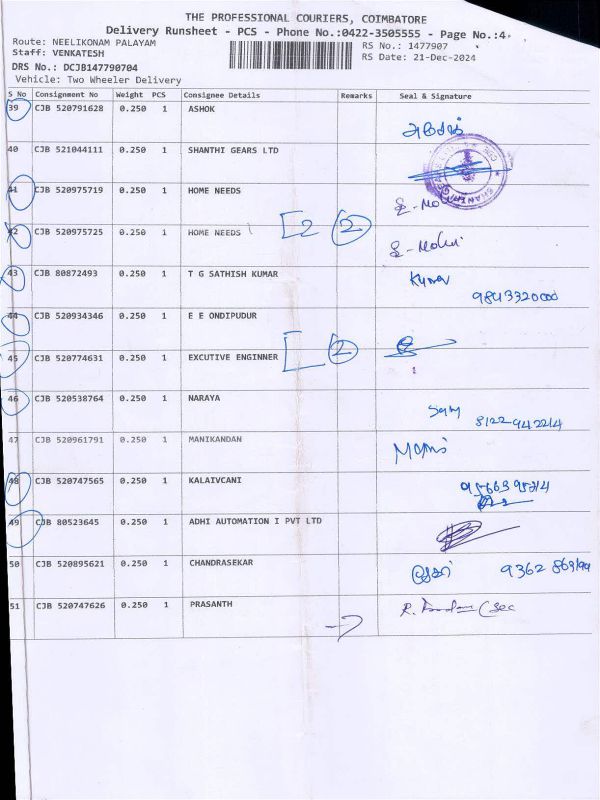 THE PROFESSIONAL COURIERS, COIMBATORE
Delivery Runsheet - PCS - Phone No.:0422-3505555 - Page No.:4
Route: NEELIKONAM PALAYAM
RS No.: 1477907
Staff: VENKATESH
RS Date: 21-Dec-2024
DRS No.: DCJB147790704
Vehicle: Two Wheeler Delivery
S No Consignment No Weight PCS Consignee Details Remarks Seal & Signature
39 CJB 520791628 0.250 1 ASHOK
40 CJB 521044111 0.250 1 SHANTHI GEARS LTD
41 CJB 520975719 0.250 1 HOME NEEDS
42 CJB 520975725 0.250 1 HOME NEEDS [2 2
43 CJB 80872493 0.250 1 T G SATHISH KUMAR Kumar
9843320000
44 CJB 520934346 0.250 1 E E ONDIPUDUR
45 CJB 520774631 0.250 1 EXCUTIVE ENGINNER [ 2
46 CJB 520538764 0.250 1 NARAYA Sam 8122942214
47 CJB 520961791 0.250 1 MANIKANDAN
48 CJB 520747565 0.250 1 KALAIVCANI
49 CJB 80523645 0.250 1 ADHI AUTOMATION I PVT LTD
50 CJB 520895621 0.250 1 CHANDRASEKAR
51 CJB 520747626 0.250 1 PRASANTH